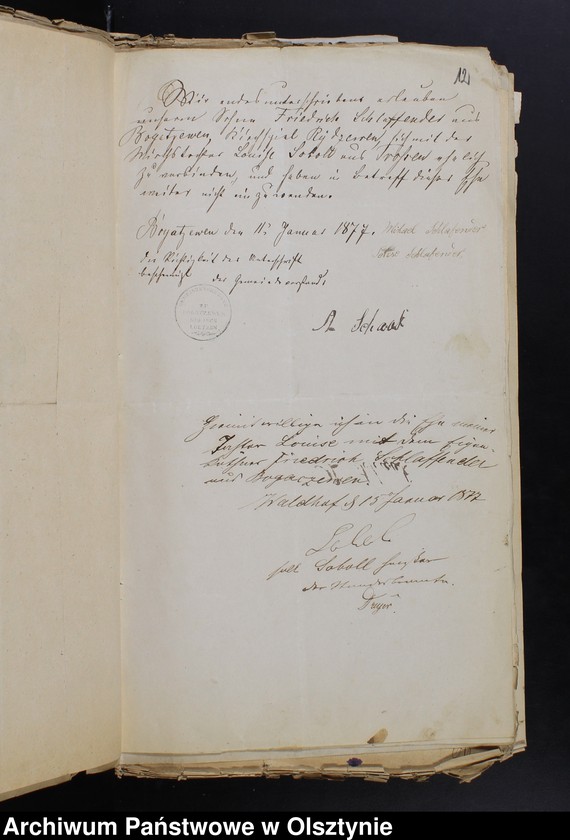 12
Wir endesunterschriebene erlauben
unserem Sohne Friedrich Schlaffender aus
Bogatzewen, Kirchspiel Rydzewen, sich mit der
Wirthstochter Louise Soboll aus Trossen ehelich
zu verbinden, und haben in Betreff dieser Ehe
weiter nicht einzuwenden.
Bogatzewen den 11t Januar 1877.
die Richtigkeit der Unterschrift
bescheinigt der Gemeindevorstand,
Hiermit willige ich in die Ehe meiner
Tochter Louise mit dem Eigen-
käthner Friedrich Schlaffender
aus Bogaczewen.
Waldhof d 15 Januar 1877
Soboll
der Standesbeamte.
Archiwum Państwowe w Olsztynie